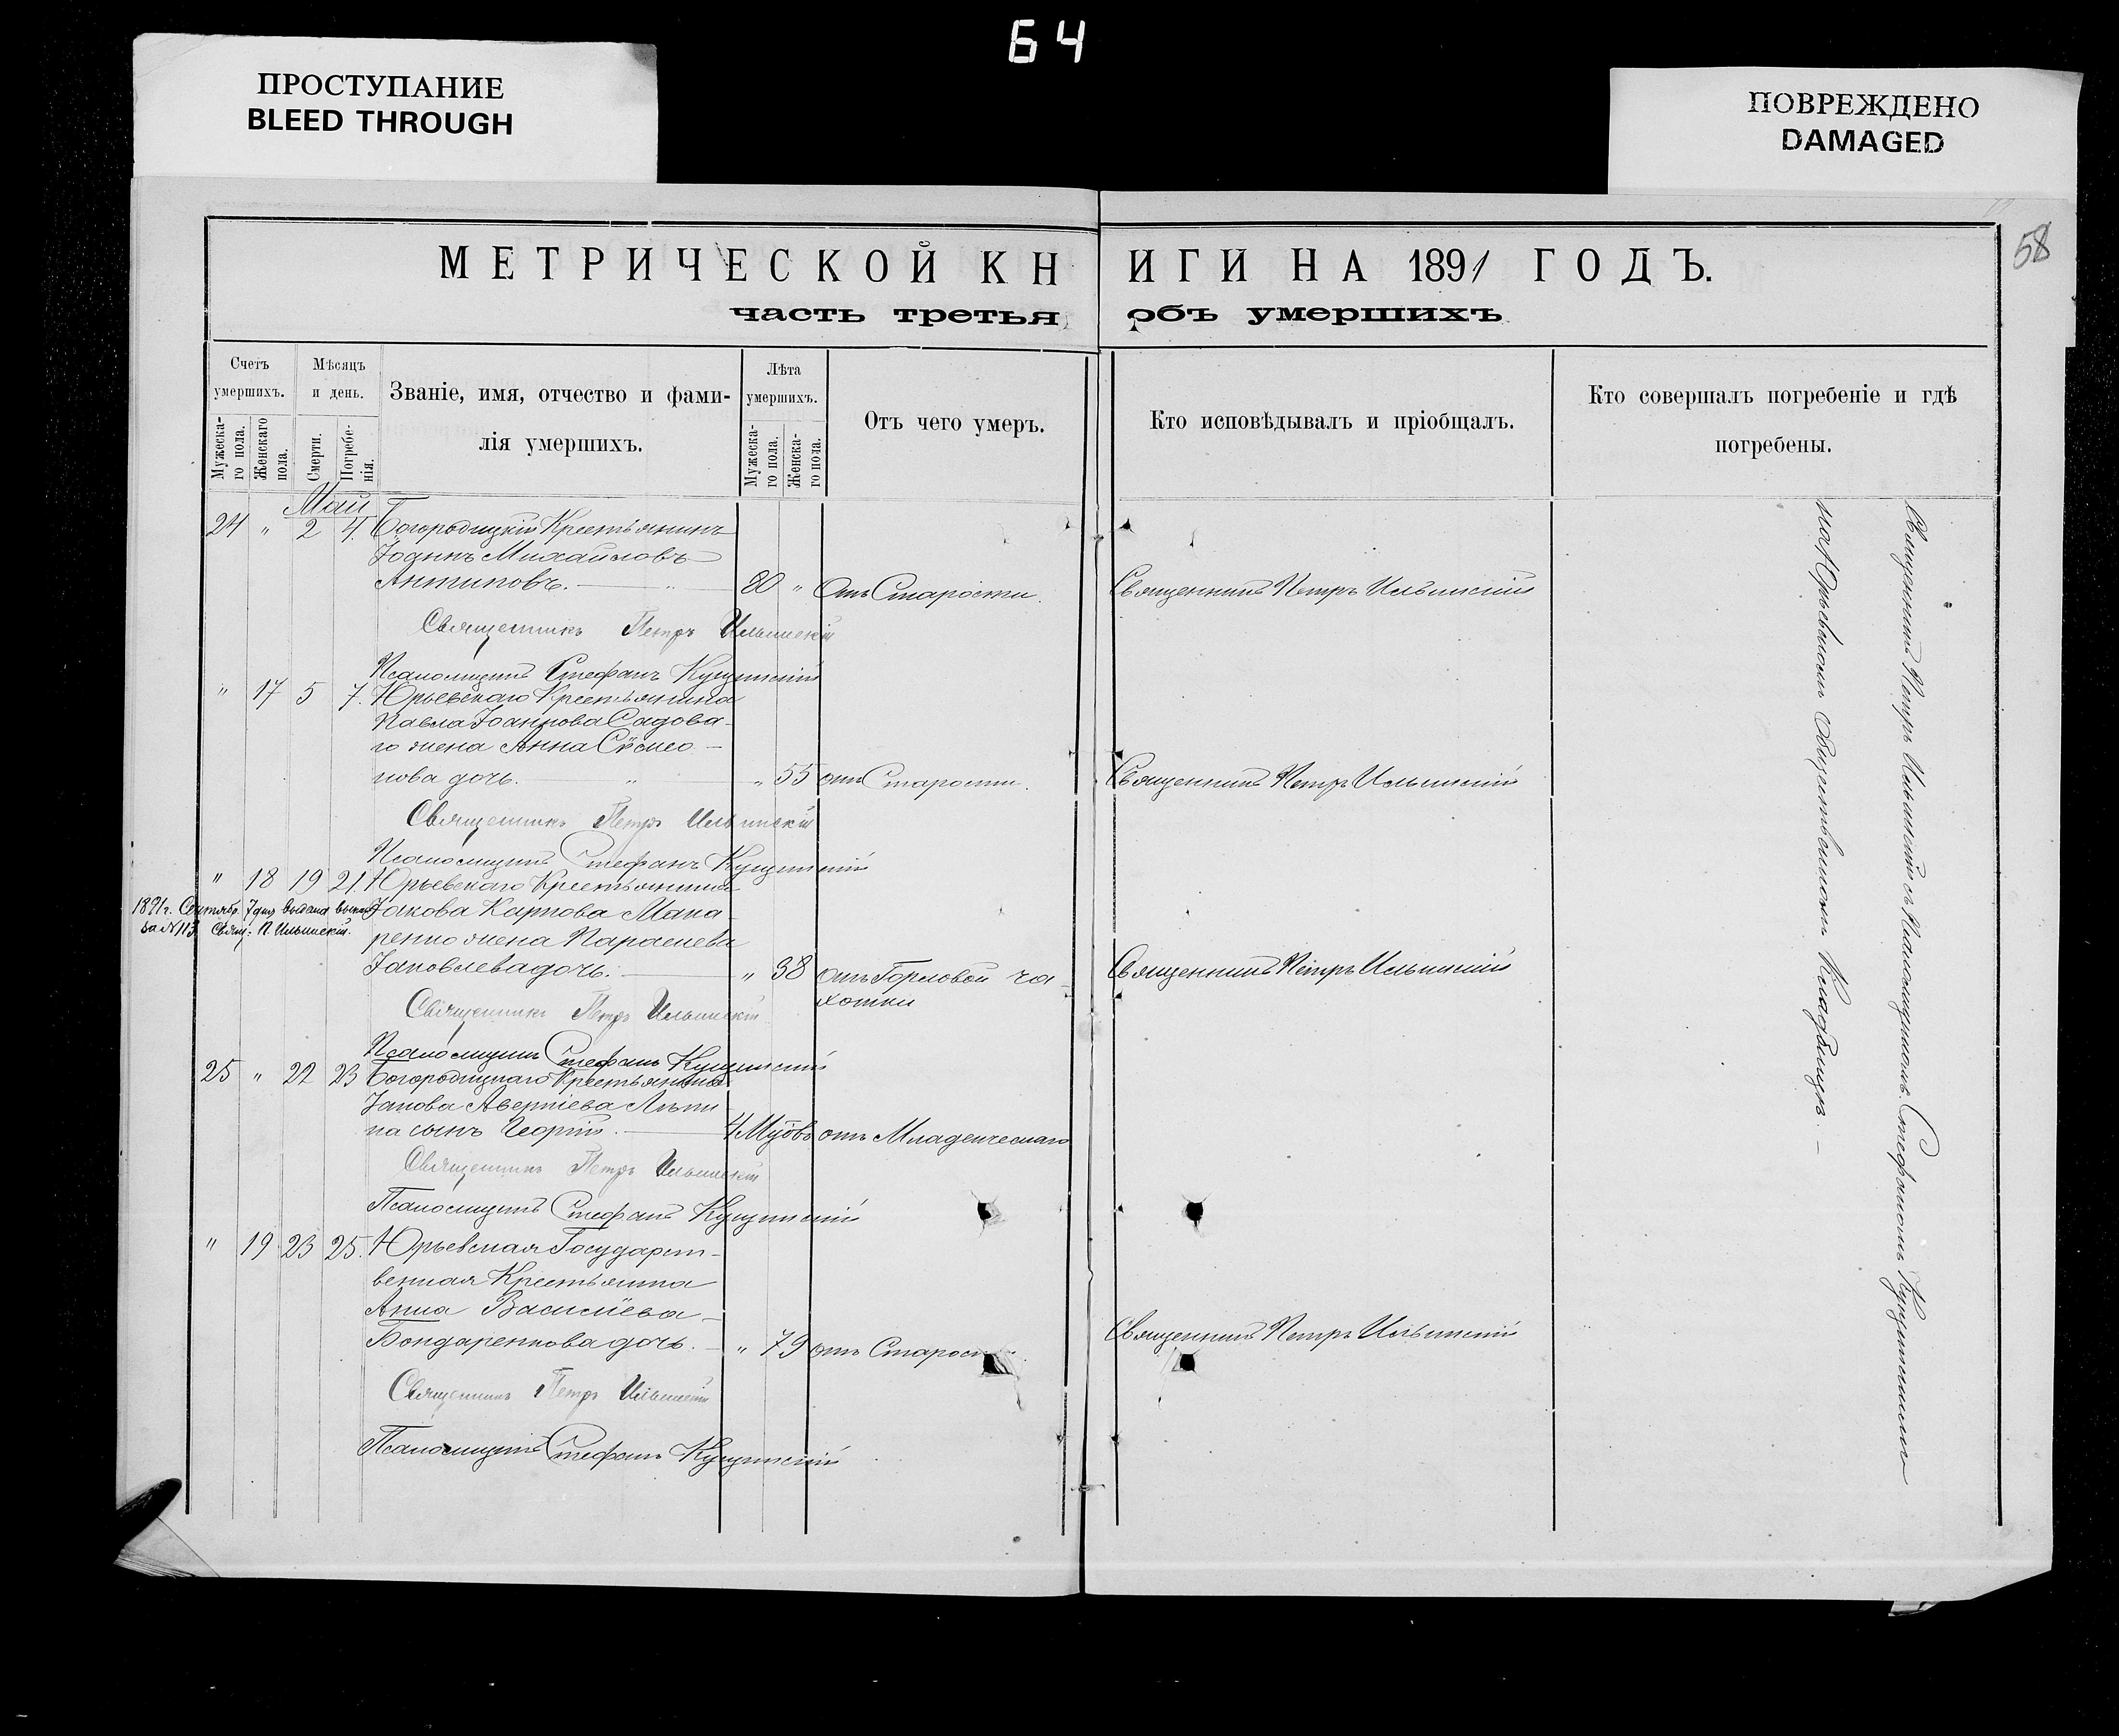 64
ПРОСТУПАНИЕ
BLEED THROUGH
ПОВРЕЖДЕНО
DAMAGED
58
МЕТРИЧЕСКОЙ КНИГИ НА 1891 ГОДЪ.
часть третья объ умершихъ
Счетъ умершихъ.
Мужеска-
го пола.
Женскаго
пола.
Мѣсяцъ и день.
Смерти.
Погребе-
нія.
Званіе, имя, отчество и фами-
лія умершихъ.
Лѣта умершихъ.
Мужеска-
го пола.
Женска-
го пола.
Отъ чего умеръ.
Кто исповѣдывалъ и пріобщалъ.
Кто совершалъ погребеніе и гдѣ
погребены.
Май
24 " 2 4. Богородицкій Крестьянинъ
Іоаннъ Михайловъ
Антиповъ. " 80 " Отъ Старости. Священникъ Петръ Ильинскій
Священникъ Петръ Ильинскій
Псаломщикъ Стефанъ Кущинскій
" 17 5 7. Юрьевскаго Крестьянина
Павла Іоаннова Садова-
го жена Анна Сѵмео-
нова дочь. " " 55 отъ Старости. Священникъ Петръ Ильинскій
Священникъ Петръ Ильинскій
Псаломщикъ Стефанъ Кущинскій
" 18 19 21 Юрьевскаго Крестьянина
1891 г. Сентябр. 7 дня выдана
за N 113 Свящ: П. Ильинскій.
Іакова Карпова Мака-
ренко жена Параскева
Іаковлева дочь. " 38 отъ Горловой ча-
хотки
Священникъ Петръ Ильинскій
Священникъ Петръ Ильинскій
Псаломщикъ Стефанъ Кущинскій
25 " 22 23 Богородицкаго Крестьянина
Іакова Аверкіева
на сынъ Георгій. 4 отъ Младенческаго
Священникъ Петръ Ильинскій
Псаломщикъ Стефанъ Кущинскій
" 19 23 25. Юрьевская Государст-
венная Крестьянка
Анна Василіева
Бондаренкова дочь. " 79 отъ Старости. Священникъ Петръ Ильинскій
Священникъ Петръ Ильинскій
Псаломщикъ Стефанъ Кущинскій
Священникъ Петръ Ильинскій съ Псаломщикомъ Стефаномъ Кущинскимъ
на Юрьевскомъ Кладбищѣ.